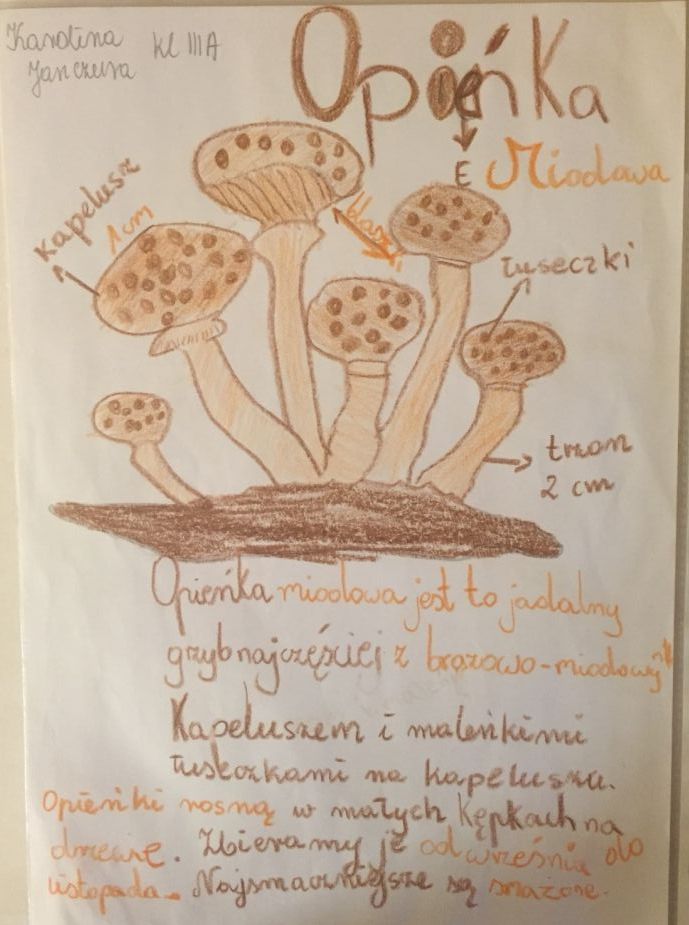 Karolina
Janczura
kl IIIA
Opieńka
E Miodowa
Kapelusz
1 cm
blaszki
łuseczki
trzon
2 cm
Opieńka miodowa jest to jadalny
grzyb najczęściej z brązowo-miodowym
Kapeluszem i maleńkimi
łuseczkami na kapeluszu.
Opieńki rosną w małych Kępkach na
drzewie. Zbieramy je od września do
listopada. Najsmaczniejsze są smażone.